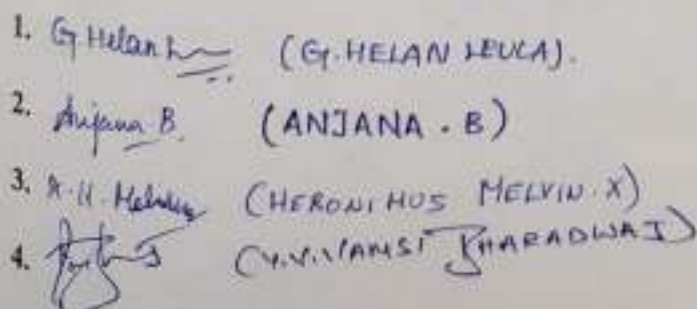 1. G Helan L (G. HELAN LEUCA).
2. Anjana B. (ANJANA . B)
3. X. H. Melvin (HERONIMUS MELVIN . X)
4. (Y.V.VAMSI BHARADWAJ)